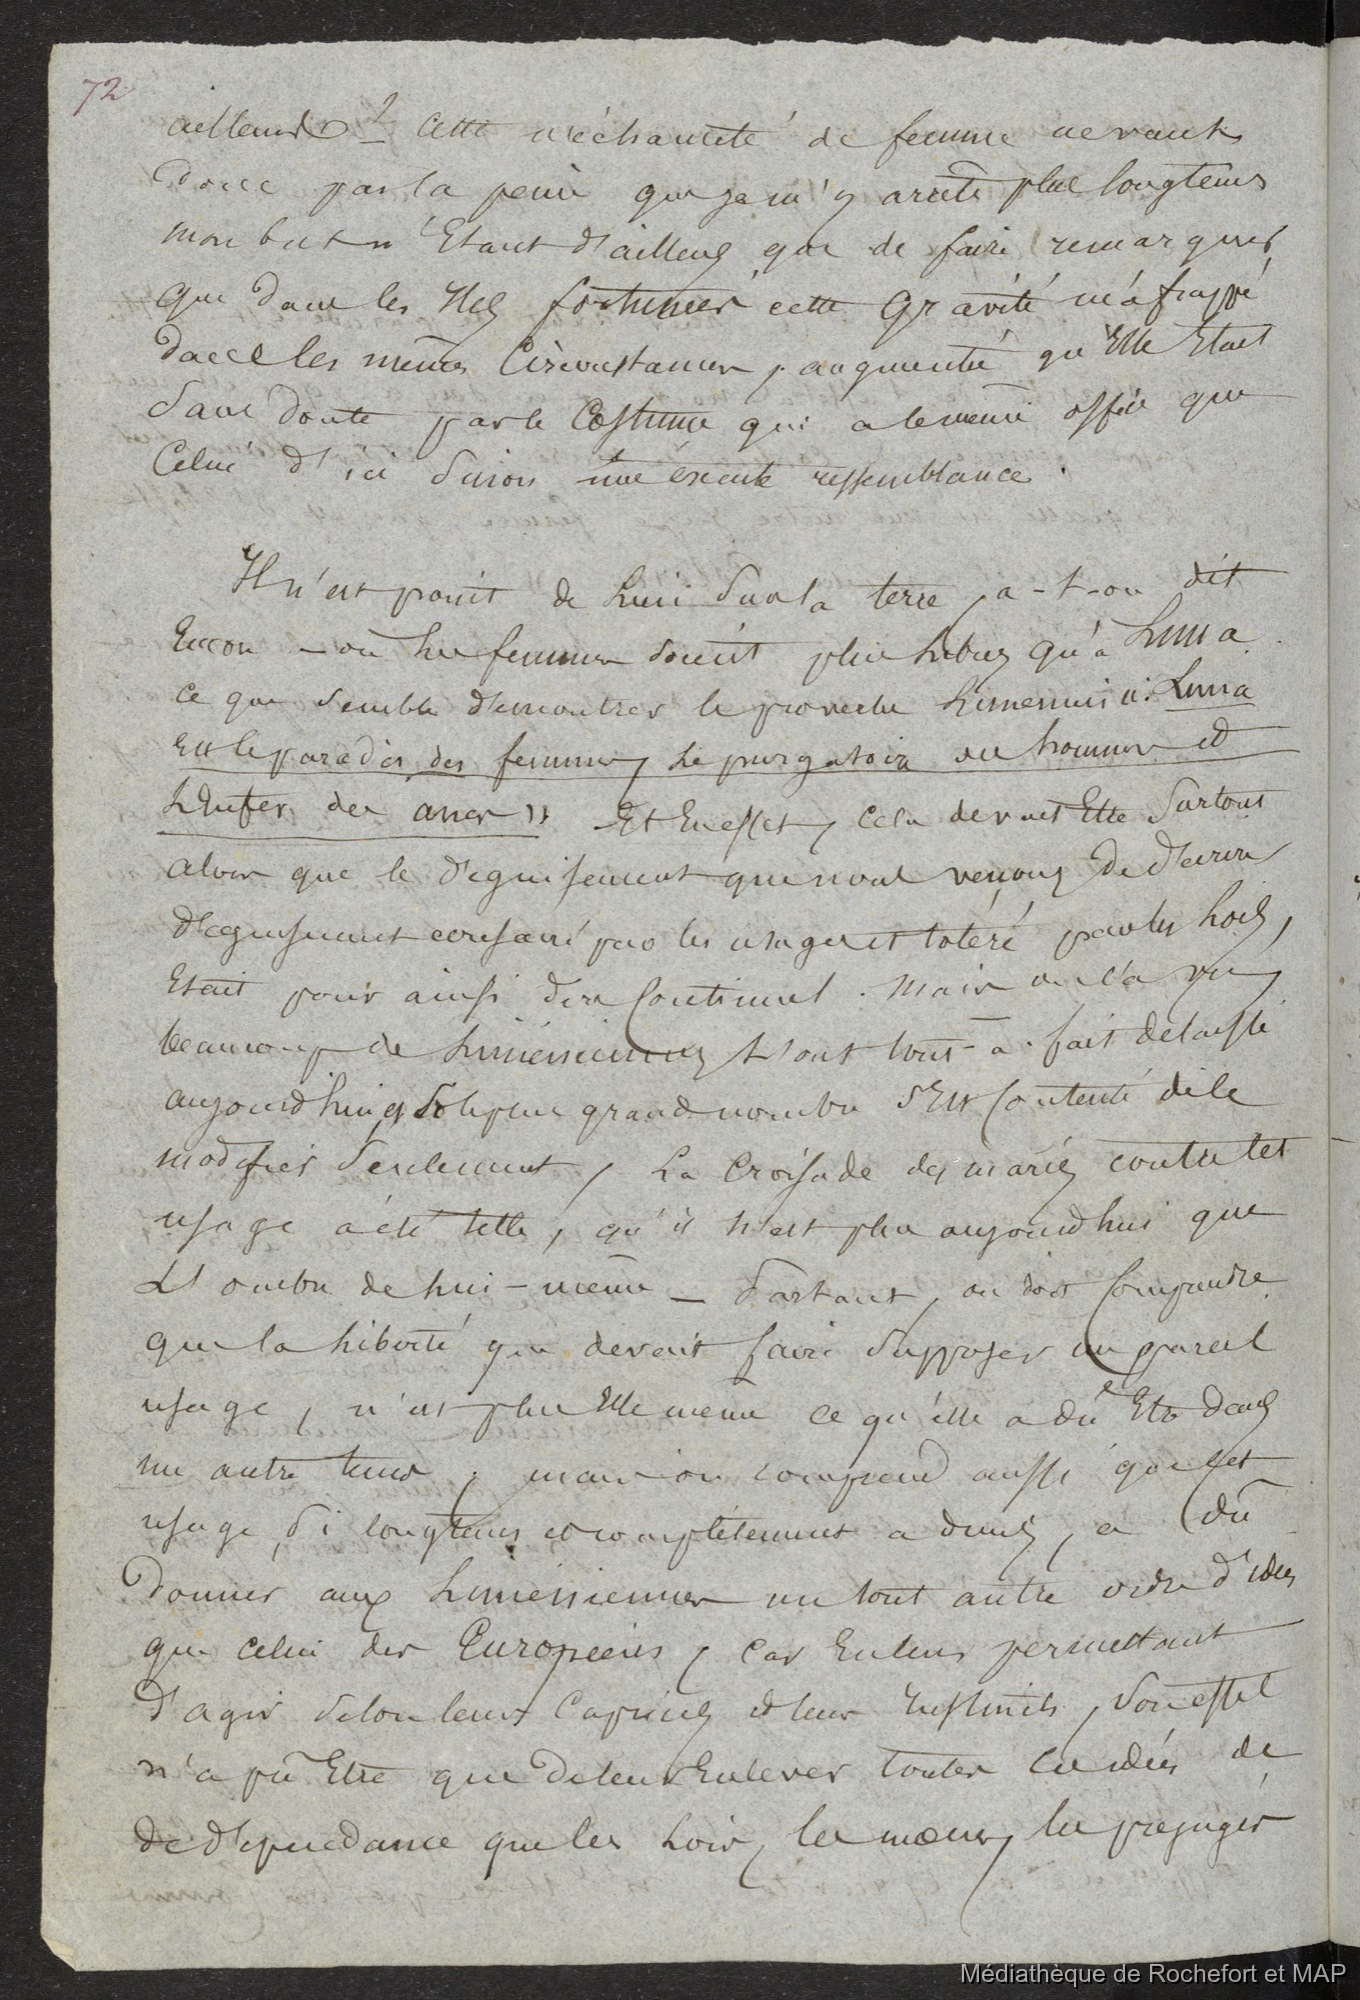 72
ailleurs ? Cette méchanceté de femme ne vaut
donc pas la peine que je m'y arrète plus longtems
mon but n'Etant d'ailleurs que de faire remarquer
que dans les Iles fortunées cette Gravité m'a frappé
dans les mêmes Circonstances, augmentée qu'Elle Etait
sans doute par le Costume qui a le même office que
Celui d'ici sinon une éxacte ressemblance.
Il n'est point de Lieu sur la terre, a-t-on dit
Encore - où les femmes soient plus Libres qu'à Lima
ce que semble démontrer le proverbe Limenien : Lima
Est le paradis des femmes, Le purgatoire des hommes et
L'Enfer des anes » Et En effet, Cela devait Etre surtout
alors que le déguisement que nous venons de décrire
déguisement consacré par les usages et toléré par les Lois,
Etait pour ainsi dire Continuel. Mais on l'a vu,
beaucoup de Liméniennes L'ont tout-à-fait delaissé
aujourd'hui, et le plus grand nombre s'Est Contenté de le
modifier seulement, La Croisade des maris contre cet
usage a été telle, qu'il n'est plus aujourd'hui que
L'ombre de Lui-même - Partant, on doit Comprendre
que la Liberté que devait faire supposer un pareil
usage, n'est plus Elle même ce qu'elle a dû Etre dans
un autre tems, mais on comprend aussi que cet
usage, si longtems et complètement admis, a dû
donner aux Liméniennes un tout autre ordre d'idées
que celui des Européens, Car En leur permettant
d'agir selon leurs Caprices et leurs Instincts, son effet
n'a pû Etre que de leur Enlever toutes les idées de
de dépendance que les Lois, les mœurs, les préjugés
Médiathèque de Rochefort et MAP